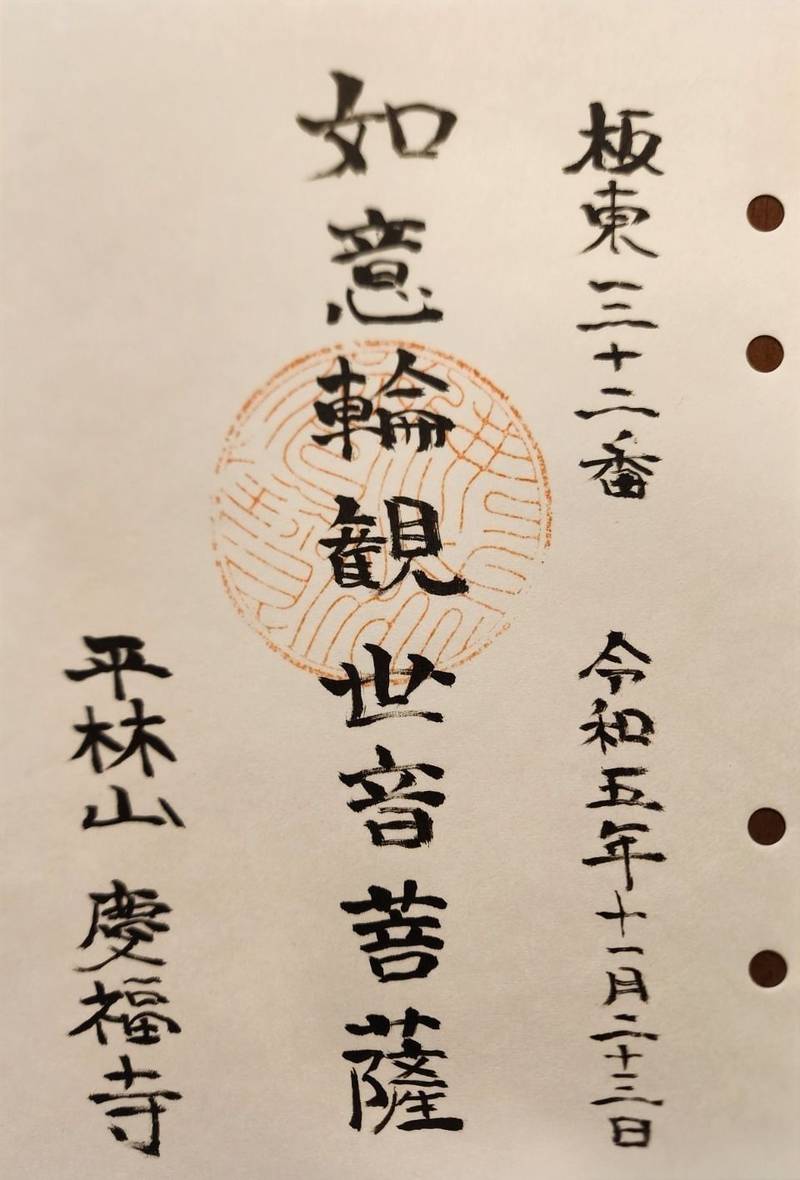 板東三十二番 令和五年十一月二十三日
如意輪観世音菩薩
平林山 慶福寺